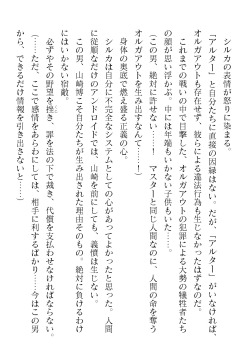 シルカの表情が怒りに染まる。
「アルター」と自分たちに直接の因縁はない。だが、「アルター」がいなければ、
オルガアウトも存在せず、彼らによる違法行為も生じなかったはずなのだ。
これまでの戦いの中で目撃した、オルガアウトの犯罪による大勢の犠牲者たち
の顔が思い浮かぶ。中には年端もいかない子供もいた……。
（この男、絶対に許せない……！　マスターと同じ人間なのに、人間の命を奪う
オルガアウトを生み出すなんて……！）
身体の奥底で燃え盛る正義の心。
シルカは自分に不完全なシステムとしての心があってよかったと思った。人間
に従順なだけのアンドロイドでは、山崎を前にしても、義憤は生じない。
この男、山崎博こそ自分たちが生み出された理由そのもの。絶対に負けるわけ
にはいかない宿敵。
必ずやその野望を挫き、罪を法の下で裁き、代償を支払わせなければならない。
（……ただ、ここで感情をあらわにしては、相手に利するばかり……今はこの男
から、できるだけ情報を引き出さないと……）